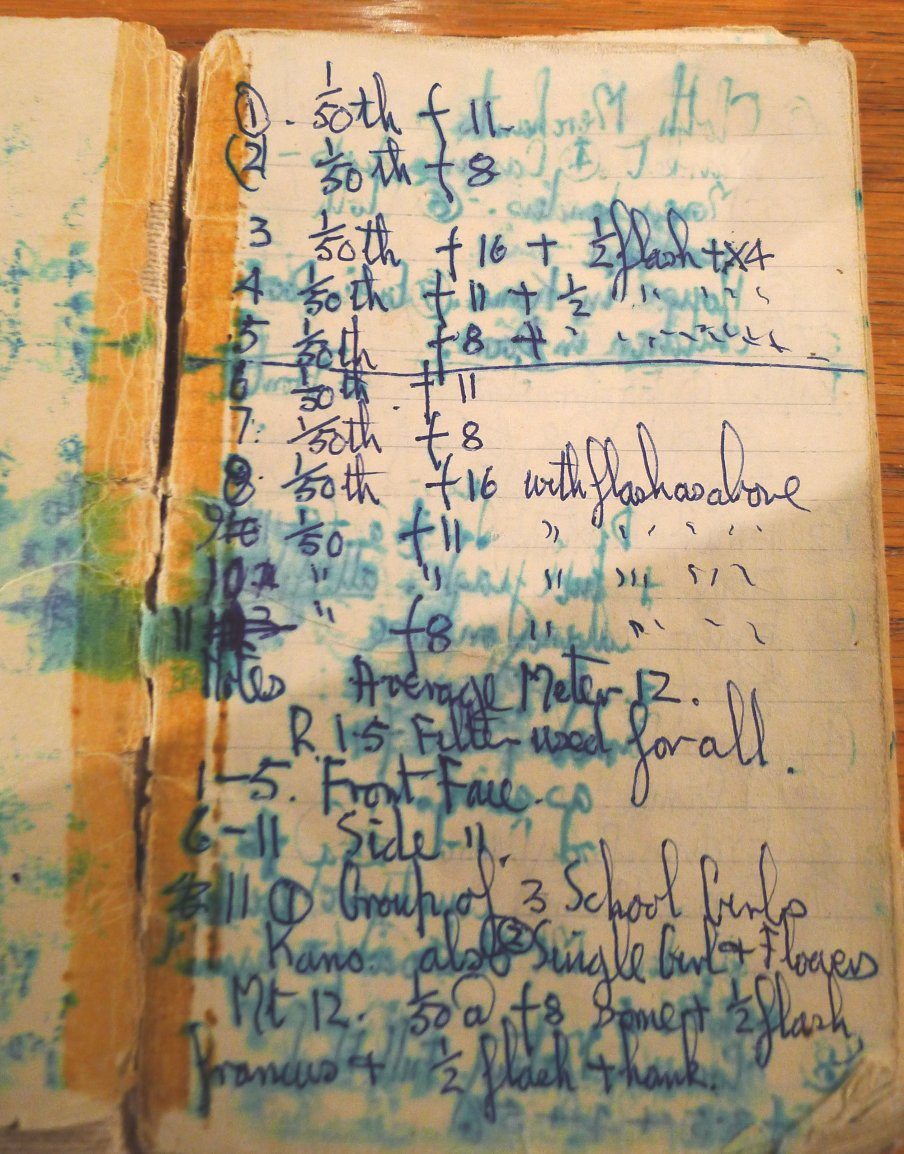 ① . 1/50th f 11.
② 1/50th f 8
3 1/50th f 16 + 1/2 flash + x4
4 1/50th f 11 + 1/2 " " "
5 1/50th f 8 + " " " "
6 1/50th . f 11
7. 1/50th f 8
8. 1/50th f 16 with flash as above
9 1/50 f 11 " " " " "
10 " " " " " "
11 " f 8 " " " "
Notes Average Meter 12.
R 1.5 Filter used for all.
1-5. Front Face.
6-11 Side ".
11 ① Group of 3 School Girls
Kano. also ② Single Girl + Flowers
Mt 12. 1/50 @ f 8 Some + 1/2 flash
+ 1/2 flash + hank.